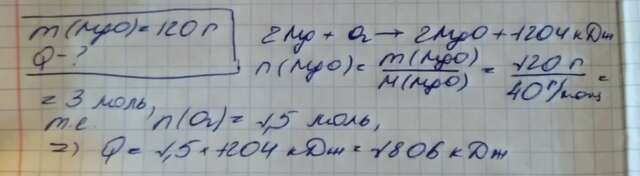 m(MgO)=120 г
Q-?
2Mg + O₂ → 2MgO + 1204 кДж
n(MgO) = m(MgO)/M(MgO) = 120 г/40 г/моль =
= 3 моль,
т.е. n(O₂) = 1,5 моль,
=> Q = 1,5 * 1204 кДж = 1806 кДж